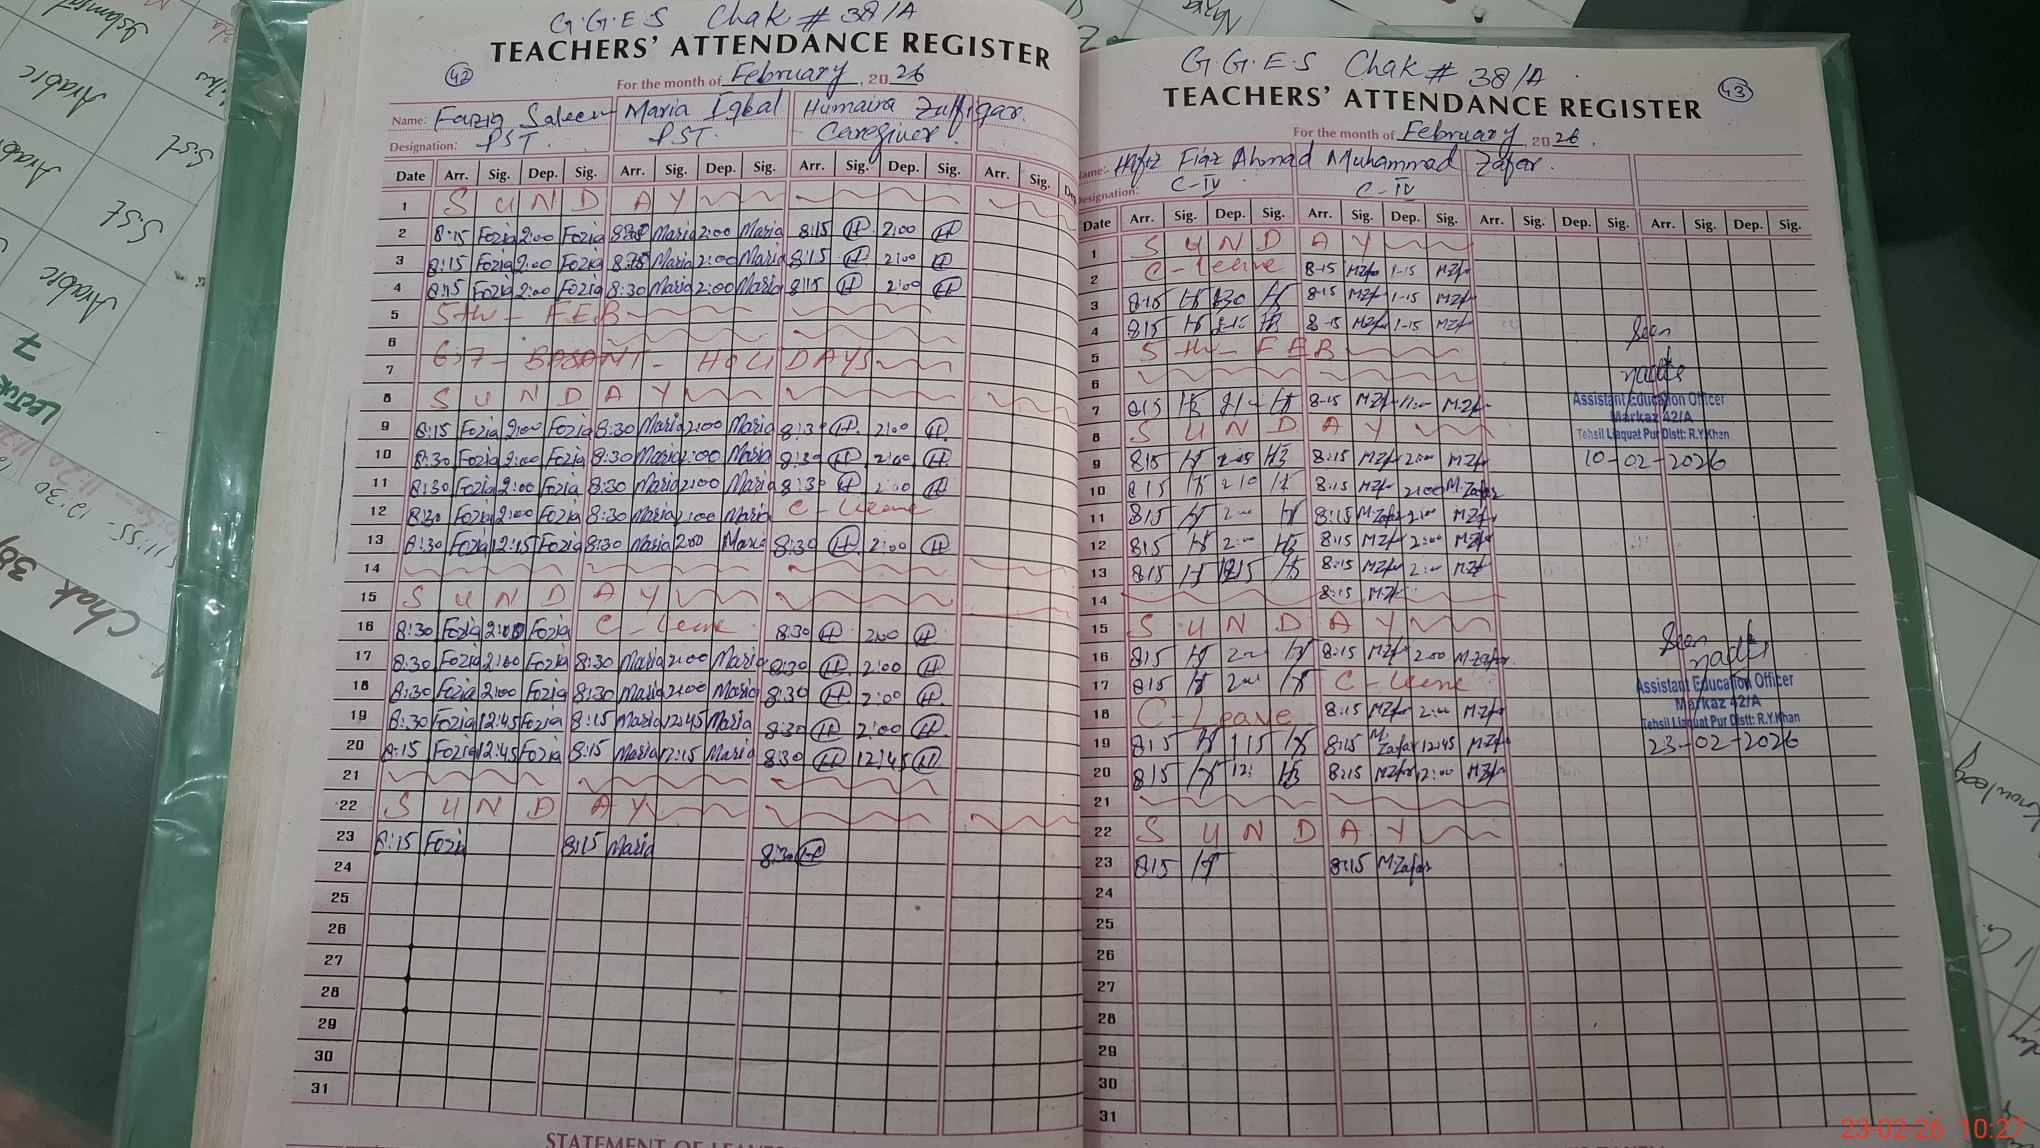 G.G.E.S Chak # 38/A
TEACHERS' ATTENDANCE REGISTER
42
For the month of February, 2026
Name: Fozia Saleem Maria Iqbal Humaira Zulfiqar.
Designation: PST. PST. Caregiver.
Date Arr. Sig. Dep. Sig. Arr. Sig. Dep. Sig. Arr. Sig. Dep. Sig. Arr. Sig.
1 SUNDAY
2 8:15 Fozia 2:00 Fozia Maria 2:00 Maria 8:15 H 2:00 H
3 8:15 Fozia 2:00 Fozia Maria 2:00 Maria 8:15 H 2:00 H
4 8:15 Fozia 2:00 Fozia 8:30 Maria 2:00 Maria 8:15 H 2:00 H
5 5th - FEB
6
7 6,7 - BASANT - HOLIDAYS
8 SUNDAY
9 8:15 Fozia 2:00 Fozia 8:30 Maria 2:00 Maria 8:30 H 2:00 H
10 8:30 Fozia 2:00 Fozia 8:30 Maria 2:00 Maria 8:30 H 2:00 H
11 8:30 Fozia 2:00 Fozia 8:30 Maria 2:00 Maria 8:30 H 2:00 H
12 8:30 Fozia 2:00 Fozia 8:30 Maria 2:00 Maria C - Leave
13 8:30 Fozia 12:15 Fozia 8:30 Maria 2:00 Maria 8:30 H 2:00 H
14
15 SUNDAY
16 8:30 Fozia 2:00 Fozia C - Leave 8:30 H 2:00 H
17 8:30 Fozia 2:00 Fozia 8:30 Maria 2:00 Maria 8:30 H 2:00 H
18 8:30 Fozia 2:00 Fozia 8:30 Maria 2:00 Maria 8:30 H 2:00 H
19 8:30 Fozia 12:45 Fozia 8:15 Maria 12:45 Maria 8:30 H 2:00 H
20 8:15 Fozia 12:45 Fozia 8:15 Maria 12:15 Maria 8:30 H 12:45 H
21
22 SUNDAY
23 8:15 Fozia 8:15 Maria 8:30 H
24
25
26
27
28
29
30
31
G.G.E.S Chak # 38/A
TEACHERS' ATTENDANCE REGISTER
43
For the month of February, 2026.
Name: Hafiz Fiaz Ahmad Muhammad Zafar.
Designation: C-IV C-IV
Date Arr. Sig. Dep. Sig. Arr. Sig. Dep. Sig. Arr. Sig. Dep. Sig. Arr. Sig. Dep. Sig.
1 SUNDAY
2 C - Leave 8-15 MZfr 1-15 MZfr
3 8:15 8-15 MZfr 1-15 MZfr
4 815 8-15 MZfr 1-15 MZfr
5 5th - FEB
6
7 815 8-15 MZfr MZfr
8 SUNDAY
9 815 8:15 MZfr 2:00 MZfr
10 815 210 8:15 MZfr 2:00 M.Zafar
11 815 2:00 8:15 M.Zafar 2:00 MZfr
12 815 2:00 8:15 MZfr 2:00 MZfr
13 815 8:15 MZfr 2:00 MZfr
14 8:15 MZfr
15 SUNDAY
16 815 200 8:15 MZfr 2:00 M.Zafar.
17 815 200 C - Leave
18 C - Leave 8:15 MZfr 2:00 MZfr
19 815 115 8:15 M.Zafar 12:45 MZfr
20 815 8:15 MZfr 12:00 MZfr
21
22 SUNDAY
23 815 8:15 M.Zafar
24
25
26
27
28
29
30
31
Seen
Assistant Education Officer
Markaz 42/A
Tehsil Liaquat Pur Distt: R.Y.Khan
10-02-2026
Seen
Assistant Education Officer
Markaz 42/A
Tehsil Liaquat Pur Distt: R.Y.Khan
23-02-2026
Arabic
Arabic
S.St
Arabic
S.St
7
Chak 38/
23-02-26 10:27